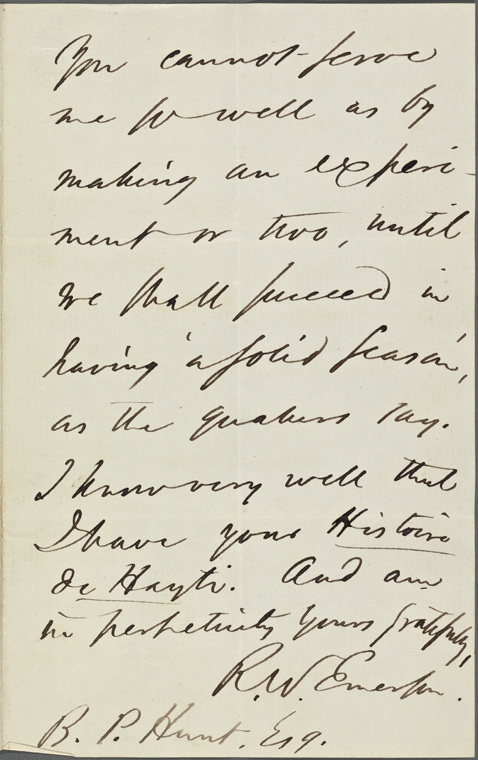 You cannot serve
me so well as by
making an experi-
ment or two, until
we shall succeed in
having 'a solid season',
as the quakers say.
I know very well that
I have your Histoire
de Hayti. And am
in perpetuity Yours gratefully,
R.W. Emerson.
B. P. Hunt. Esq.